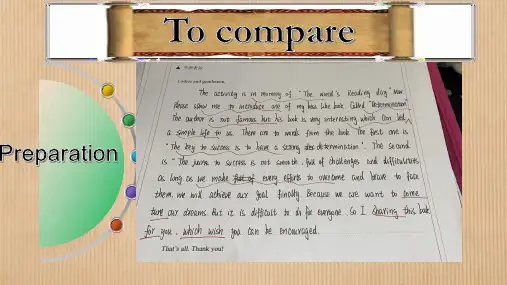 To compare
Preparation
Ladies and gentlemen,
The activity is in memory of "The world's Reading day". Now
Please allow me to introduce one of my best like book. Called "Determination".
The author is our famous but his book is very interesting which can led
a simple life to us. There are to words from the book. The first one is
"The key to success is to have a strong determination". The second
is "The journ to success is not smooth, full of challenges and difficulties
as long as we make every efforts to overcome and brave to face
them, we will achieve our goal finally. Because we are want to come
ture our dreams. But it is difficult to do for everyone. So I sharing this book
for you, which wish you can be encouraged.
That's all. Thank you!